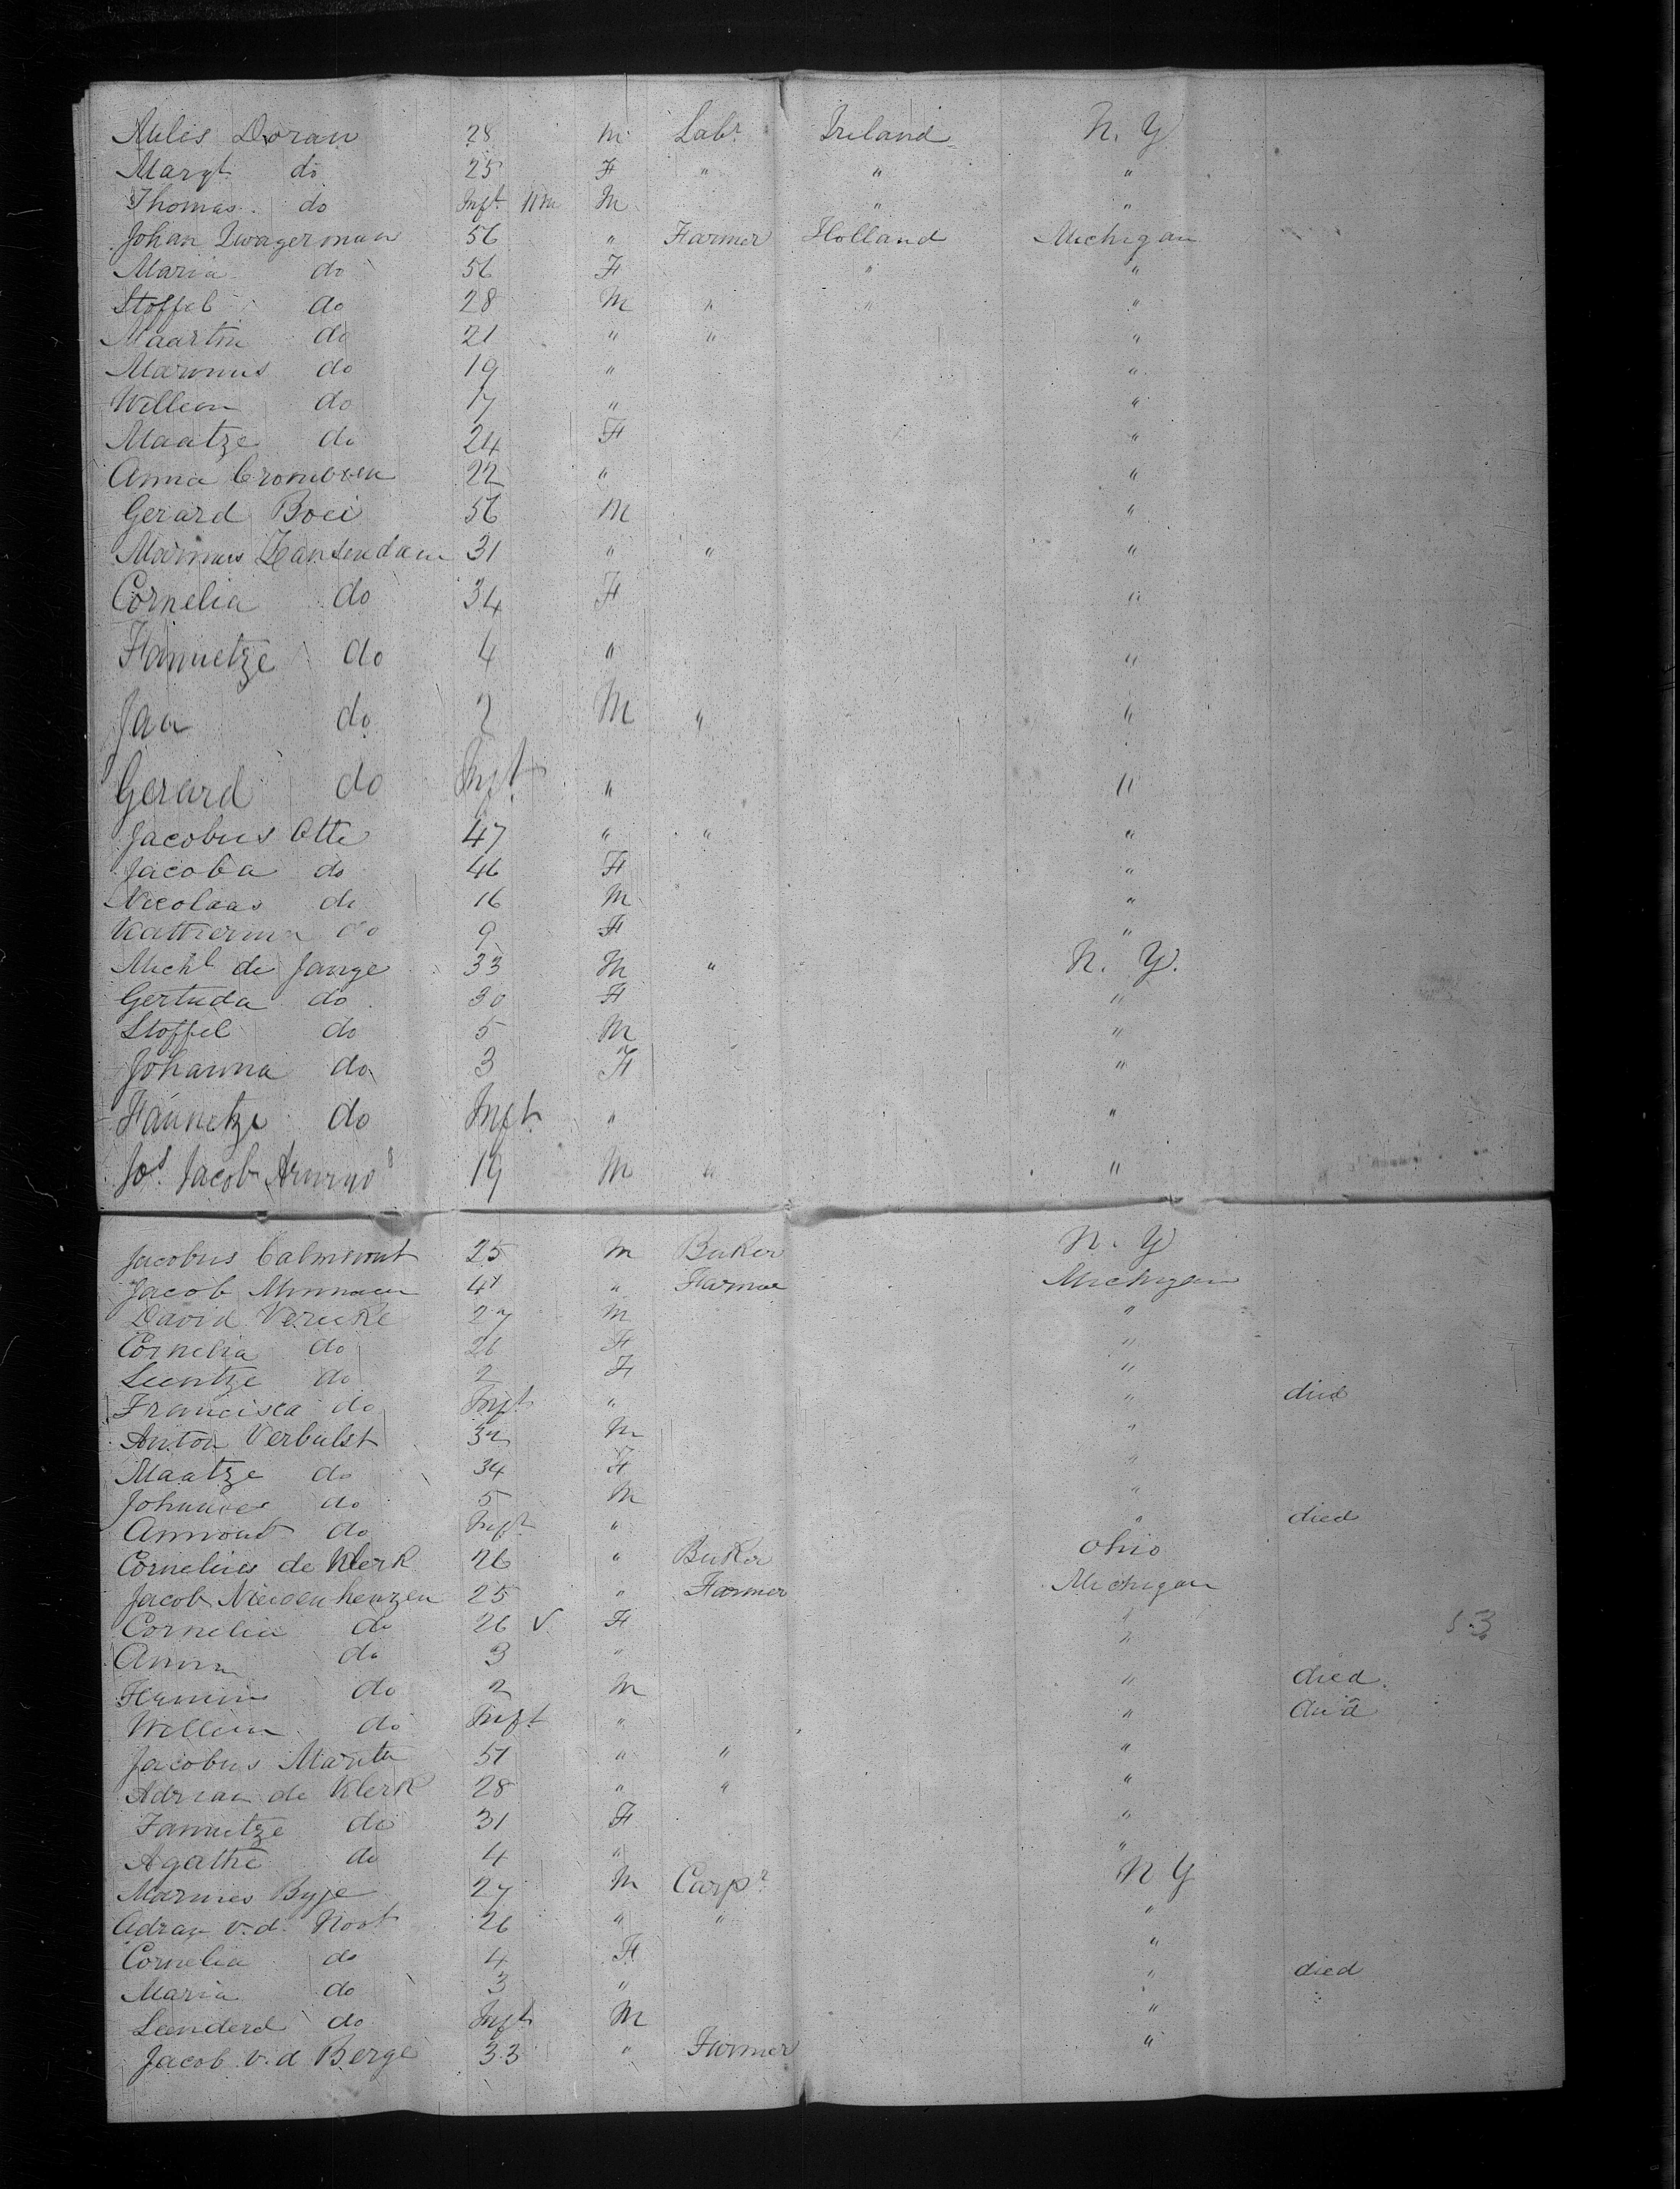 Miles Doran 28 M Labr Ireland N. Y
Margt do 25 F " " "
Thomas do Inft M " "
Johan Zwagerman 56 " Farmer Holland Michigan
Maria do 56 F " "
Stoffel do 28 M " " "
Maartin do 21 " " "
Marinus do 19 " "
Willem do 17 " "
Maatze do 24 F "
Anna 22 " "
Gerard Boei 56 M "
Marinus Zantendam 31 " " "
Cornelia do 34 F "
Hannetze do 4 " "
Jan do 2 M " "
Gerard do Inft " "
Jacobus Otte 47 " " "
Jacoba do 46 F "
Nicolaas do 16 M "
Katherina do 9 F "
Michl de Jange 33 M " N. Y.
Gertuda do 30 F "
Stoffel do 5 M "
Johanna do 3 F "
Hannetze do Inft " "
Jos. Jacob 19 M " "
Jacobus 25 M Baker N. Y
Jacob 41 " Farmer Michigan
David Vereeke 27 M "
Cornelia do 26 F "
Leentze do 2 F "
Francisca do Inft " " died
Anton Verhulst 32 M "
Maatze do 34 F "
Johannes do 5 M "
Arnout do Inft " " died
Cornelius de Klerk 26 " Baker Ohio
Jacob 25 " Farmer Michigan
Cornelia do 26 √ F " 53
Anna do 3 " "
do 2 M " died
Willem do Inft " " died
Jacobus 51 " " "
Adrian de Klerk 28 " " "
Jannetze do 31 F "
Agathe do 4 " "
Marinus Byje 27 M Carpr N Y
Adrian v.d. Noot 26 " " "
Cornelia do 4 F "
Maria do 3 " " died
Leenderd do Inft M "
Jacob v.d Berge 33 " Farmer "